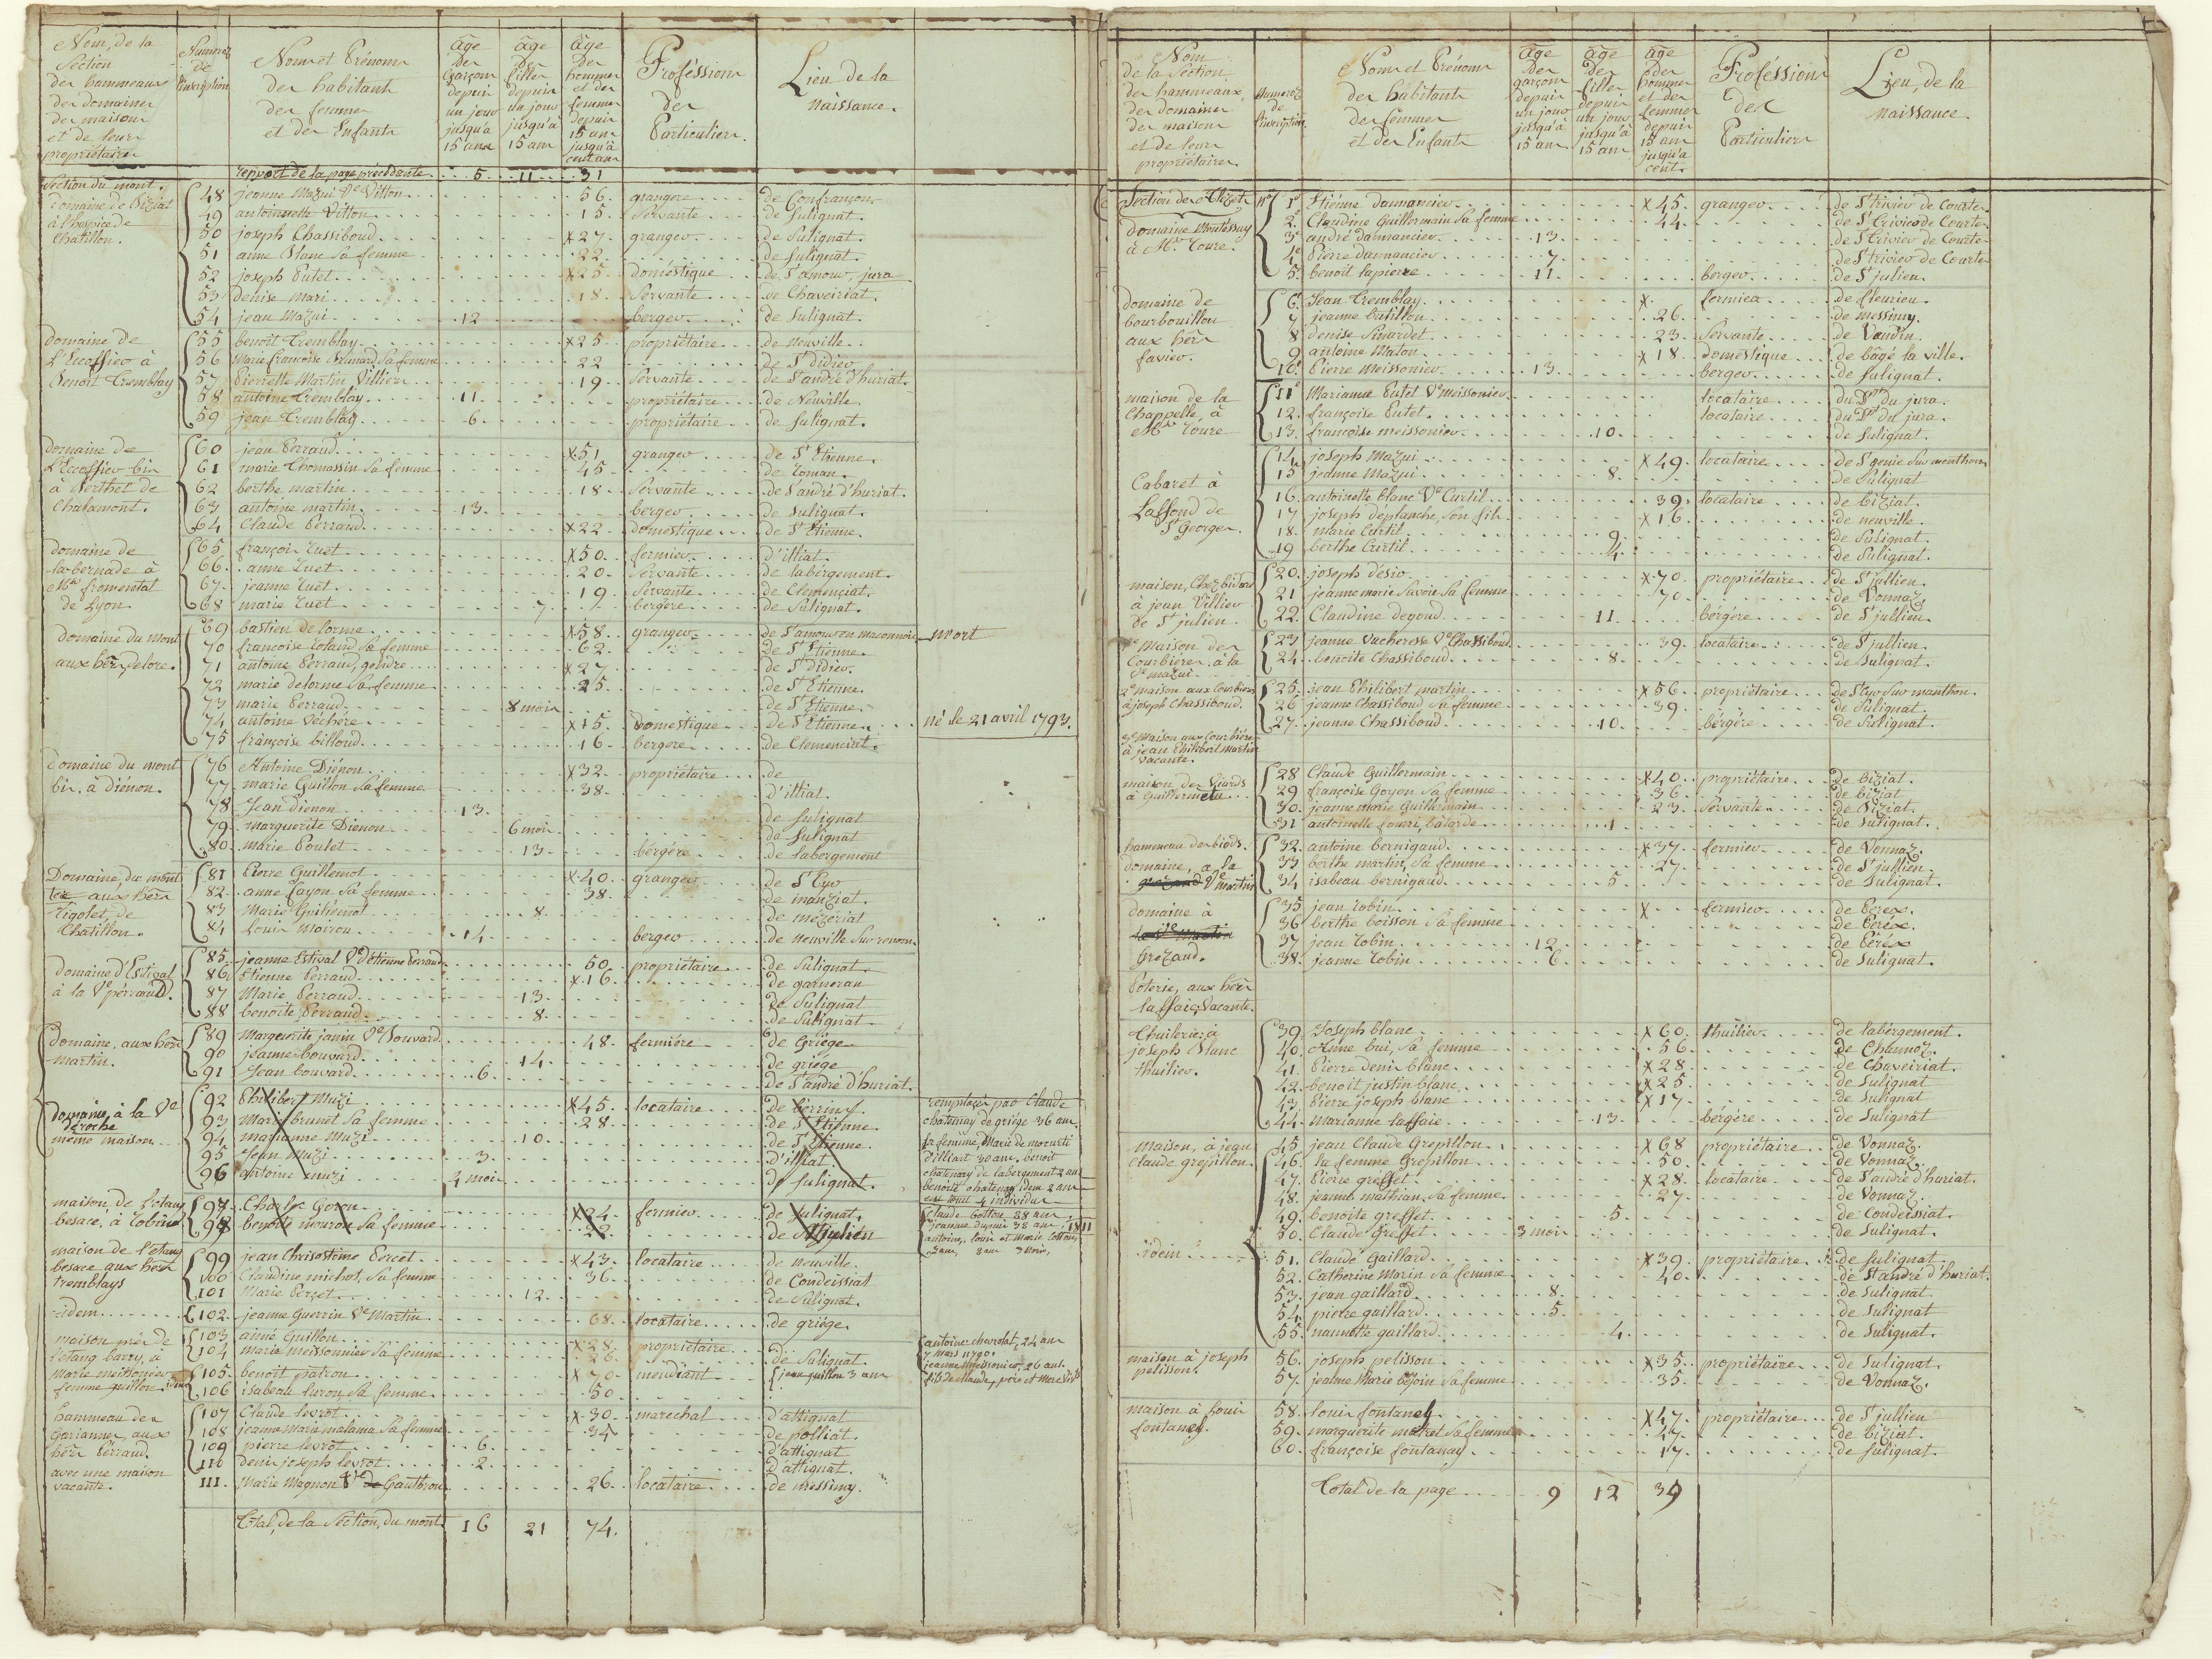 Nom, de la
Section
des hammeaux
des domaines
des maisons
et de leurs
propriétaires
Numeroz
de
l'inscription
Noms et Prénoms
des habitants
des femmes
et des Enfants
âge
des
garçons
depuis
un jour
jusqu'à
15 ans
âge
des
filles
depuis
un jour
jusqu'à
15 ans
âge
des
hommes
et des
femmes
depuis
15 ans
jusqu'à
cent ans
Proféssions
des
Particuliers.
Lieu de la
naissance.
report de la page précédante 5 11 31
Section du mont.
domaine de Biziat
à l'hospice de
Chatillon.
48 jeanne Mazui Ve Vitton 56. grangere de Confrançon
49 antoinette Vitton 15. Servante de Sulignat.
50 joseph Chassiboud x27. granger de Sulignat.
51 anne blanc Sa femme 22. de Sulignat.
52 joseph Putet x25 doméstique de St amour, jura
53 denise Mari 18. Servante de Chaveiriat.
54 jean Mazui 12 berger de Sulignat.
domaine de
L'Escoffier à
Benoit Tremblay
55 benoit Tremblay x25 propriétaire de neuville
56 Marie françoise Brunard Sa femme 22 de St didier
57 Pierrette Martin Villier 19 Servante de St andré d'huriat.
58 antoine Tremblay 11 propriétaire de Neuville
59 jean Tremblay 6 propriétaire de Sulignat.
domaine de
L'Escoffier bis
à Berthet de
Chalamont.
60 jean Perraud x51 granger de St Etienne.
61 marie Thomassin Sa femme 45 de Roman.
62 berthe martin 18 Servante de St andré d'huriat.
63 antoine martin 13 berger de Sulignat.
64 Claude Perraud x22 domestique de St Etienne.
domaine de
la bernade à
Mr fromental
de Lyon
65 françois Tuet x50. fermier d'illiat.
66 anne Tuet 20 Servante de labérgement.
67 jeanne Tuet 19 Servante de Clemençiat.
68 marie Tuet 7 bergére de Sulignat.
domaine du mont
aux hérs, delore.
69 bastien delorme x58. granger de St amour en maconnois mort
70 francoise Loland Sa femme 62. de St Etienne
71 antoine Perraud, gendre x27 de St didier
72 marie delorme Sa femme 25 de St Etienne.
73 marie Perraud 8 mois de St Etienne
74 antoine Vechére x15 domestique de St Etienne. né le 21 avril 1793.
75 françoise billoud 16 bergere de Clemenciat.
domaine du mont
bis. à diénon.
76 Antoine Diénon x32. propriétaire de
77 marie Guillon Sa femme 38. d'illiat.
78 Jean dienon 13 de Sulignat
79 marguerite Dienon 6 mois de Sulignat
80 Marie Poulet 13 bérgére de labergement
Domaine, du mont
ter aux hérs
Rigolet, de
Chatillon.
81 Pierre Guillemot x40 granger de St Cyr
82 anne Layon Sa femme 38 de manziat.
83 Marie Guillemot 8 de mézeriat
84 Louis Morron 14 berger de Neuville Sur renom
domaine d'Estival
à la Ve pérraud.
85 jeanne Estival Ve d'étienne Perraud 50 propriétaire de Sulignat
86 Etienne Perraud x16 de garneran
87 Marie Perraud 13 de Sulignat
88 benoite Perraud 8 de Sulignat
Domaine, aux hérs
Martin.
89 Marguerite janin Ve Bouvard 48 fermiére de Griége
90 jeanne bouvard 14 de griége
91 Jean bouvard 6 de St andré d'huriat.
domaine, à la Ve
deroche
même maison
92 Philibert Muzi x45 locataire de Perrins.
93 Marie brunet Sa femme 28 de St Etienne
94 marianne Muzi 10 de St Etienne.
95 Jean Muzi 3 d'illiat.
96 antoine muzi 2 mois de Sulignat.
remplacer par Claude
chatenay de griége 36 ans
sa femme, Marie de mocurti
d'illiat 30 ans. benoit
chatenay de labergement 2 ans
benoite chatenay idem 2 ans
maison, de l'etang
besace, à Robin
97 Charles Goron x24 fermier de Sulignat.
98 benoite mouron Sa femme 22 de St julien
Claude Cotton 38 ans
jeanne dupuis 38 ans 1811
antoine, louis et Marie Cotton
maison de l'etang
besace aux hérs
tremblays
99 jean Chrisostôme Percet x43 locataire de neuville.
100 Claudine michot, Sa femme 36 de Condeissiat
101 Marie Perçet 12 de Sulignat.
idem
102 jeanne Guerrin Ve Martin 68 locataire de griége.
maison prés de
l'etang barry, à
Marie meissonier
femme guillon idem
103 aimé Guillon x28 propriétaire
104 marie meissonnier Sa femme 26 de Sulignat.
105 benoit patron x70 mendiant jean guillon 3 ans
106 isabeau luron Sa femme 50
antoine chevrolat, 24 ans
7 mars 1790.
jeanne meissonier, 26 ans.
hammeau des
garianner, aux
hérs Perraud.
avec une maison
vacante.
107 Claude levrot x30 marechal d'attignat
108 jeanne Marie malama Sa femme 34 de polliat
109 pierre levrot 6 d'attignat
110 denis joseph levrot 2 d'attignat.
111 Marie Magnon Ve de Gauthron 26 locataire de messimy.
Total, de la Section, du mont 16 21 74.
Nom
de la Section
des hammeaux
des domaines
des maisons
et de leurs
propriétaires
Numeroz
de
l'inscription
Noms et Prénoms
des habitants
des femmes
et des Enfants
âge
des
garçons
depuis
un jour
jusqu'à
15 ans
âge
des
filles
depuis
un jour
jusqu'à
15 ans
âge
des
hommes
et des
femmes
depuis
15 ans
jusqu'à
cent.
Proféssions
des
Particuliers
Lieu, de la
naissance.
Section de Clizet
domaine Montéssuy
à Mr Toure.
No 1er Etienne damancier x45. granger de St Trivier de Courte
2e Claudine Guillermain Sa femme 44 de St Trivier de Courte
3e andré damancier 13 de St Trivier de Courte
4e Pierre damancier 7 de St trivier de Courte
5 benoit lapierre 11 berger de St julien.
domaine de
bourbouillon
aux hérs
favier.
6 Jean Tremblay x fermier de fleurieu.
7 jeanne batillon 26 de messimy.
8 denise Sivardet 23 Servante de Vandin.
9 antoine Maton x18 doméstique de bâgé la ville.
10 Pierre Meissonier 13 berger de Sulignat.
maison de la
Chappelle, à
Mr Toure
11 Marianne Putet Ve Meissonier locataire du Dt du jura.
12 françoise Putet locataire du Dt du jura.
13 françoise meissonier 10 de Sulignat.
Cabaret à
Laffond de
St George.
14 joseph Mazui x49. locataire de St genis Sur menthon
15 jeanne Mazui 8 de Sulignat
16 antoinette blanc Ve Curtil 39 locataire de biziat.
17 joseph déplanche, Son fils x16 de neuville
18 marie Curtil 9 de Sulignat.
19 berthe Curtil 4 de Sulignat.
maison, Chez bidon
à jean Villier
de St julien
20 joseph désir x70 propriétaire de St jullien
21 jeanne marie Savoie Sa femme 70 de Vonnaz.
22 Claudine degoud 11 bérgére de St jullien.
1e Maison des
Courbieres à la
Ve mazui
23 jeanne Vucheresse Ve Chassiboud 39 locataire de St jullien
24 benoite Chassiboud 8 de Sulignat.
2e Maison aux Courbieres
à joseph Chassiboud.
25 jean Philibert martin x56 propriétaire de St Cyr Sur manthon.
26 jeanne Chassiboud Sa femme 39 de Sulignat.
27 jeanne Chassiboud 10 bérgére de Sulignat.
3e Maison aux Courbieres
à jean Philibert Martin
vacante.
maison des Viards
à Guillermain
28 Claude Guillermain x40 propriétaire de biziat.
29 françoise Goyon Sa femme 36 de biziat
30 jeanne marie Guillermain 23 Servante de Biziat.
31 antoinette fourri, bâtarde 1 de Sulignat.
hammeau des biods.
domaine, a la
grozand Ve Martin
32 antoine bernigaud x37 fermier de Vonnaz.
33 berthe martin, Sa femme 27 de St jullien
34 isabeau bernigaud 5 de Sulignat.
domaine à
la Ve Martin
Grozand.
35 jean Robin x fermier de Peréx.
36 berthe boisson Sa femme de Peréx.
37 jean Robin 12 de Péréx
38 jeanne Robin 6 de Sulignat.
Poterie, aux hérs
laffaie, Vacante.
Thuilerie, à
joseph Blanc
thuilier.
39 Joseph blanc x60 thuilier de labérgement.
40 Anne bui, Sa femme 56 de Chamoz.
41 Pierre denis blanc x28 de Chaveiriat.
42 benoit justin blanc x25 de Sulignat
43 Pierre joseph blanc x17 de Sulignat
44 marianne laffaie 13 bérgére de Sulignat
Maison, à jean
Claude grepillon.
45 jean Claude Grepillon x68 propriétaire de Vonnaz.
46 la femme Grepillon 50 de Vonnaz.
47 Pierre greffet x28 locataire de St andré d'huriat.
48 jeanne mathian, Sa femme 27 de Vonnaz.
49 benoite greffet 5 de Condeissiat.
50 Claude Greffet 3 mois de Sulignat.
idem
51 Claude Gaillard x39 propriétaire de Sulignat
52 Catherine Morin Sa femme 40 de St andré d'huriat.
53 jean gaillard 8 de Sulignat.
54 pierre gaillard 5 de Sulignat
55 nannette gaillard 4 de Sulignat.
maison à joseph
pelisson.
56 joseph pelisson x35 propriétaire de Sulignat.
57 jeanne Marie bejoin Sa femme 35 de Vonnaz.
maison à louis
fontanel.
58 louis fontanel x47 propriétaire de St jullien
59 marguerite moret Sa femme 47 de biziat.
60 françoise fontanay 17 de Sulignat.
Total de la page 9 12 39